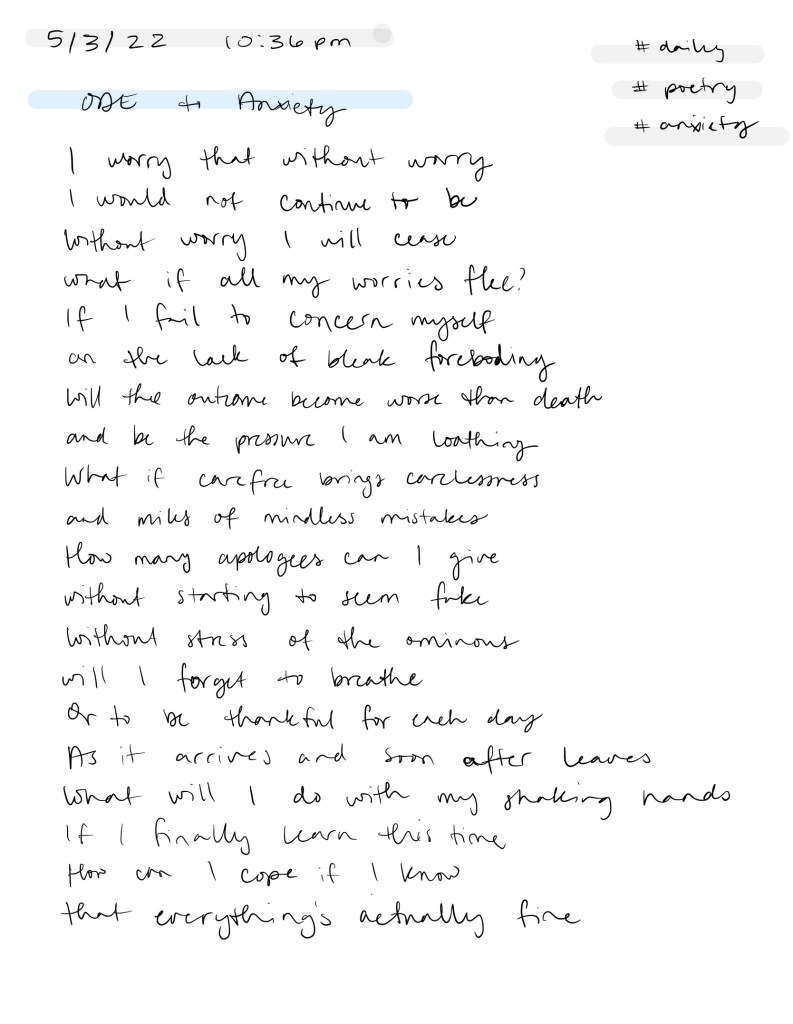 5/3/22 10:36 pm
# daily
# poetry
# anxiety
ODE to Anxiety
I worry that without worry
I would not continue to be
Without worry I will cease
what if all my worries flee?
If I fail to concern myself
on the lack of bleak foreboding
Will the outcome become worse than death
and be the pressure I am loathing
What if carefree brings carelessness
and miles of mindless mistakes
How many apologees can I give
without starting to seem fake
Without stress of the ominous
will I forget to breathe
Or to be thankful for each day
As it arrives and soon after leaves
What will I do with my shaking hands
If I finally learn this time
How can I cope if I know
that everything's actually fine